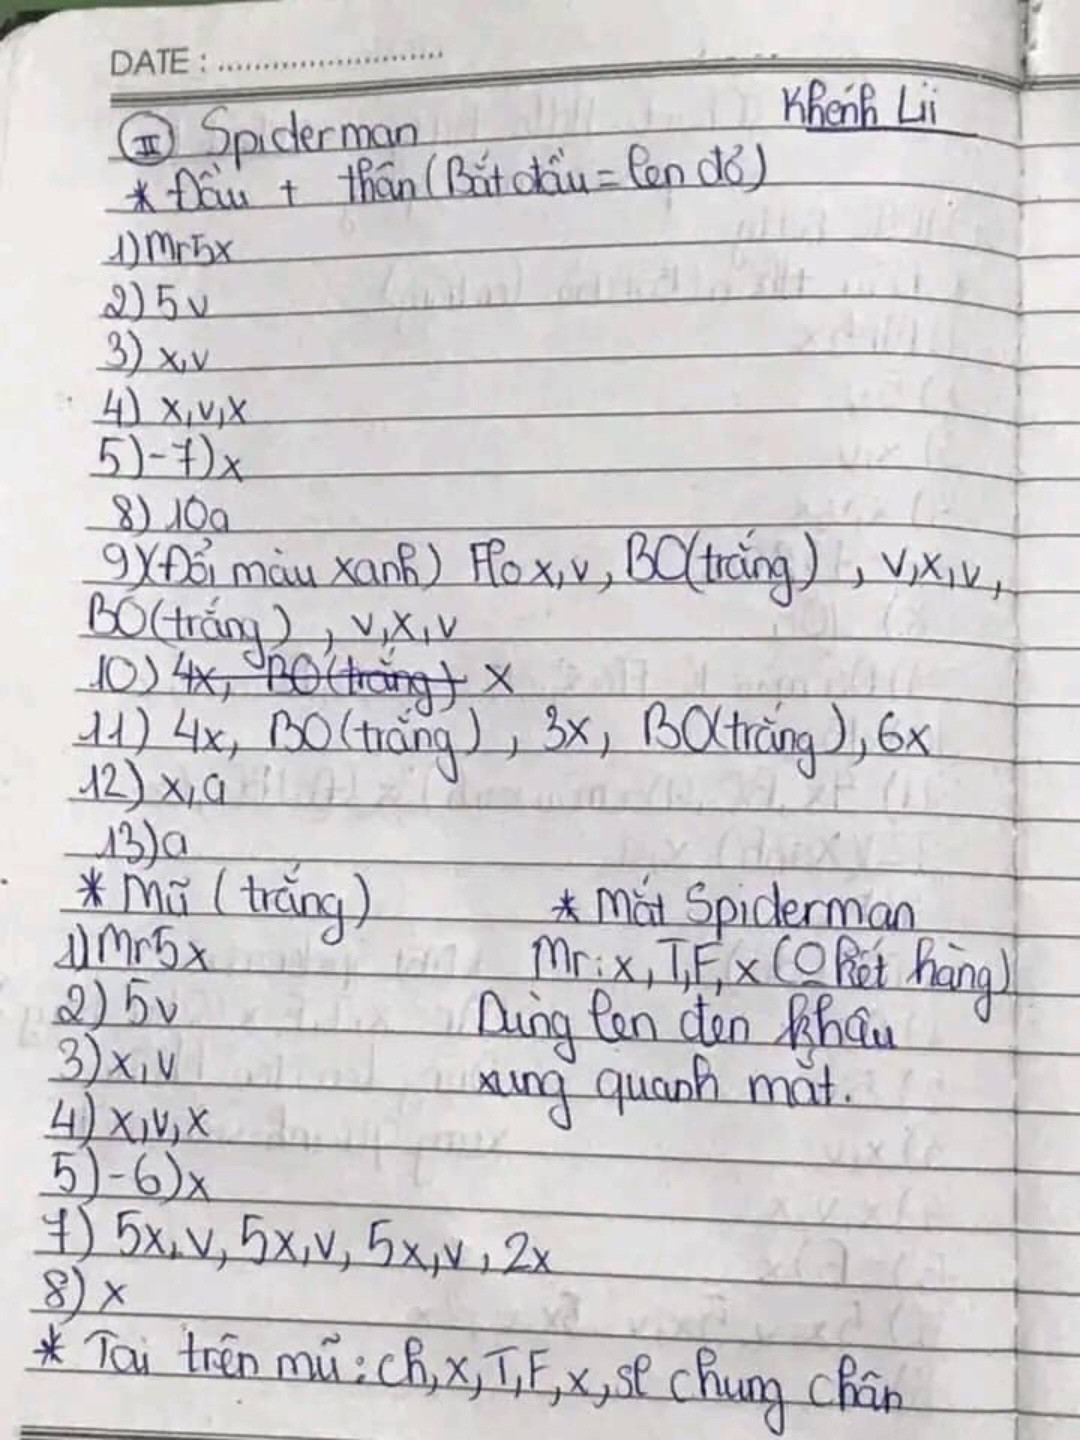 DATE :
Khénh Lii
II Spiderman
* Đầu + thân (Bắt đầu = len đỏ)
1) Mr5x
2) 5v
3) x,v
4) x,v,x
5)-7)x
8) 10a
9)(Đổi màu xanh) Flo x,v, BO(trắng), v,x,v,
BO(trắng), v,x,v
10) 4x, BO(trắng) x
11) 4x, BO(trắng), 3x, BO(trắng), 6x
12) x,a
13)a
* Mũ (trắng)
1) Mr5x
2) 5v
3) x,v
4) x,v,x
5)-6)x
7) 5x,v, 5x,v, 5x,v, 2x
8) x
* Mắt Spiderman
Mr: x,T,F,x (O kết hàng)
Dùng len đen khâu
xung quanh mắt.
* Tai trên mũ: ch,x,T,F,x,sl chung chân